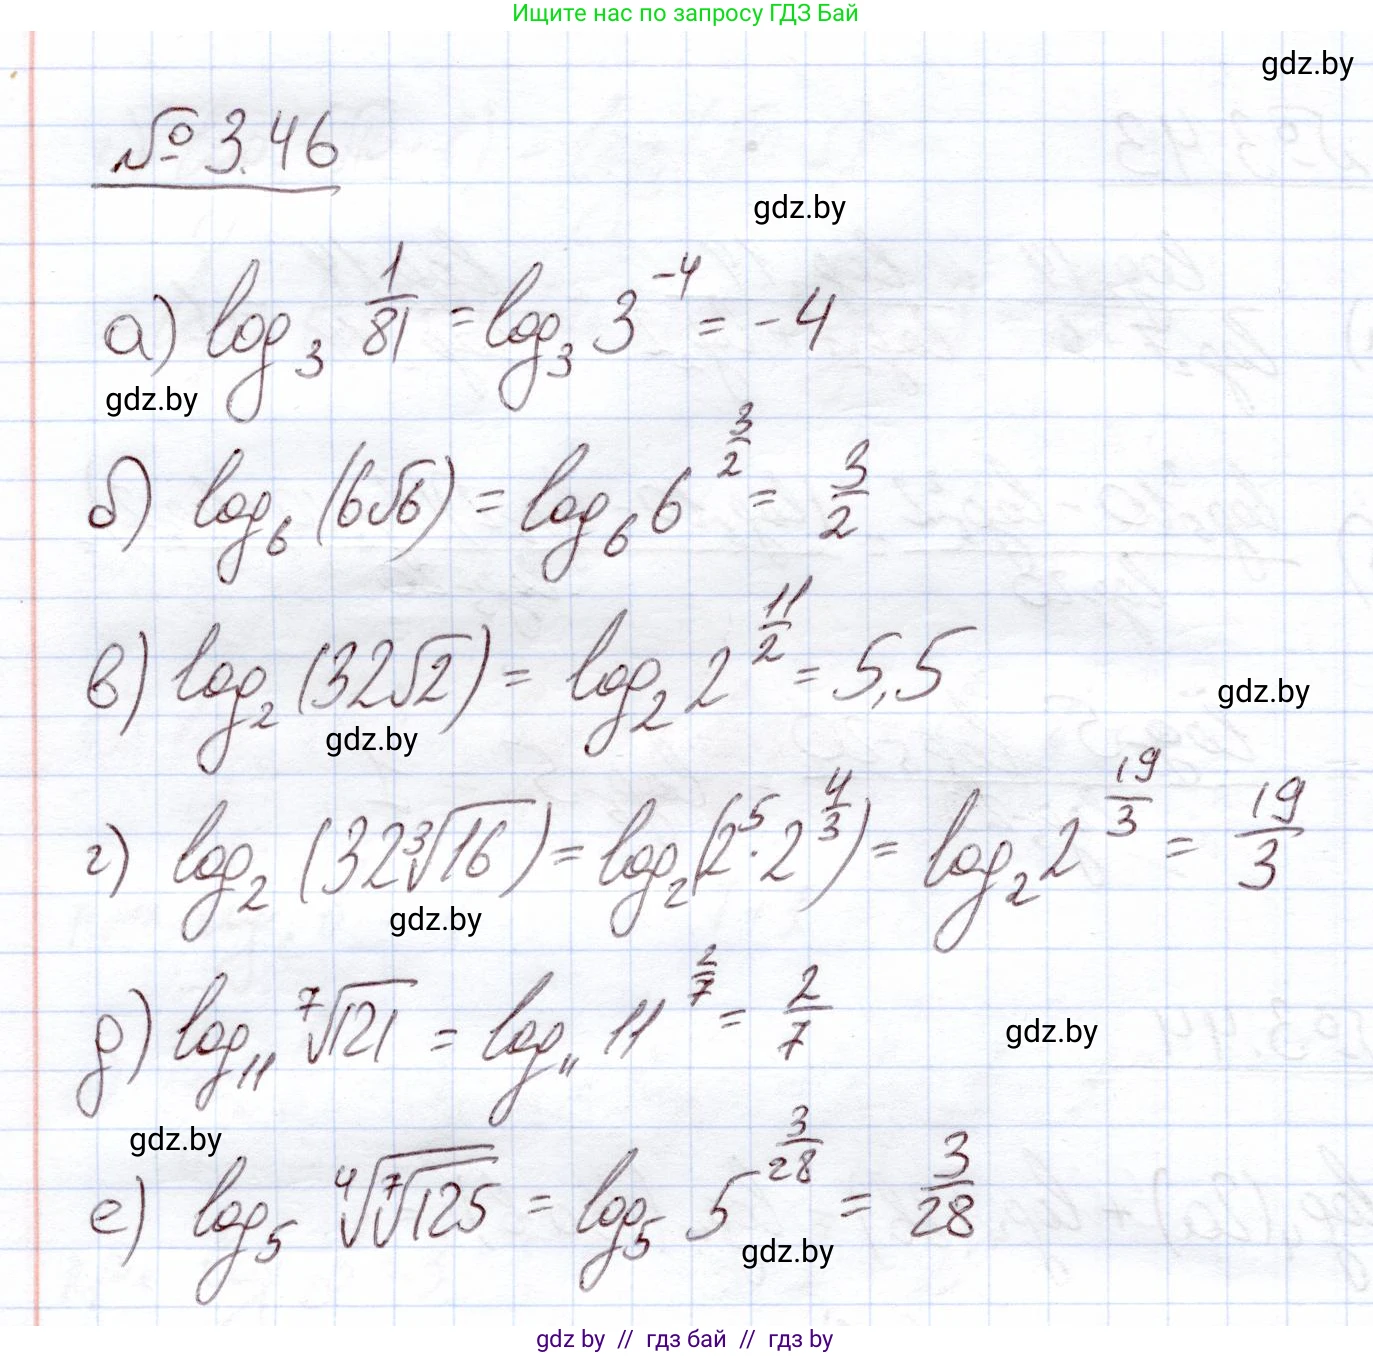 Ищите нас по запросу ГДЗ Бай
gdz.by
№ 3.46
gdz.by
а) log₃ 1/81 = log₃ 3^(-4) = -4
gdz.by
б) log₆ (6√6) = log₆ 6^(3/2) = 3/2
в) log₂ (32√2) = log₂ 2^(11/2) = 5,5
gdz.by
gdz.by
г) log₂ (32∛16) = log₂ (2⁵ · 2^(4/3)) = log₂ 2^(19/3) = 19/3
gdz.by
д) log₁₁ ⁷√121 = log₁₁ 11^(2/7) = 2/7
gdz.by
gdz.by
е) log₅ ⁴√(⁷√125) = log₅ 5^(3/28) = 3/28
gdz.by
gdz by // гдз бай // гдз by